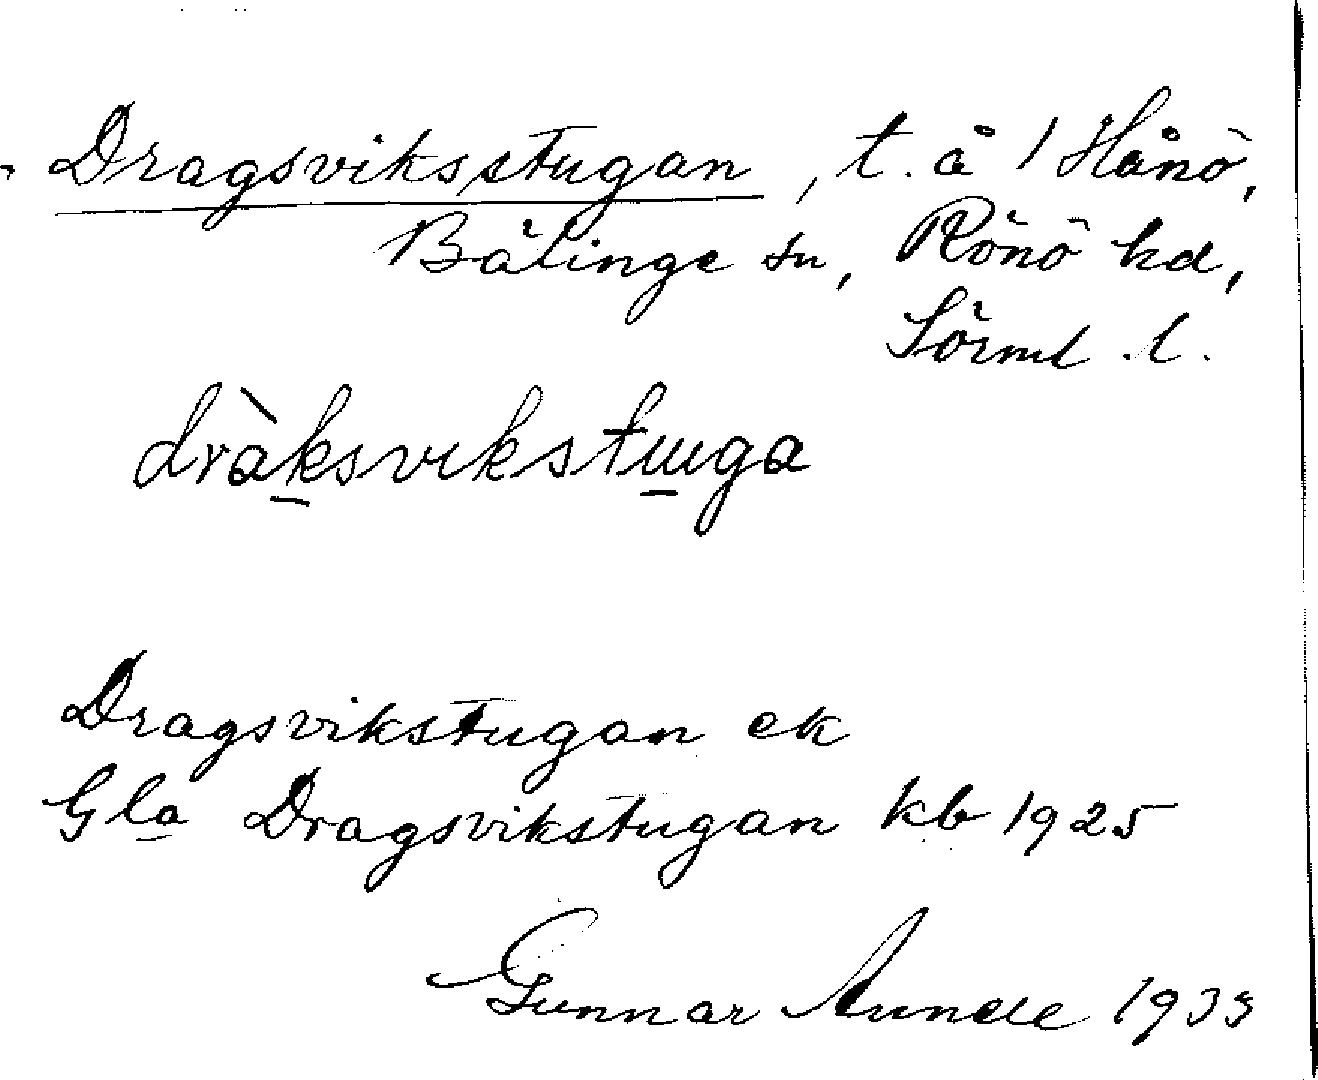 Dragsviksstugan, t. å 1 Hånö,
Bälinge sn, Rönö hd,
Sörml. l.
dràksvikstuga
Dragsvikstugan ek
Gla Dragsvikstugan kb 1925
Gunnar 1933